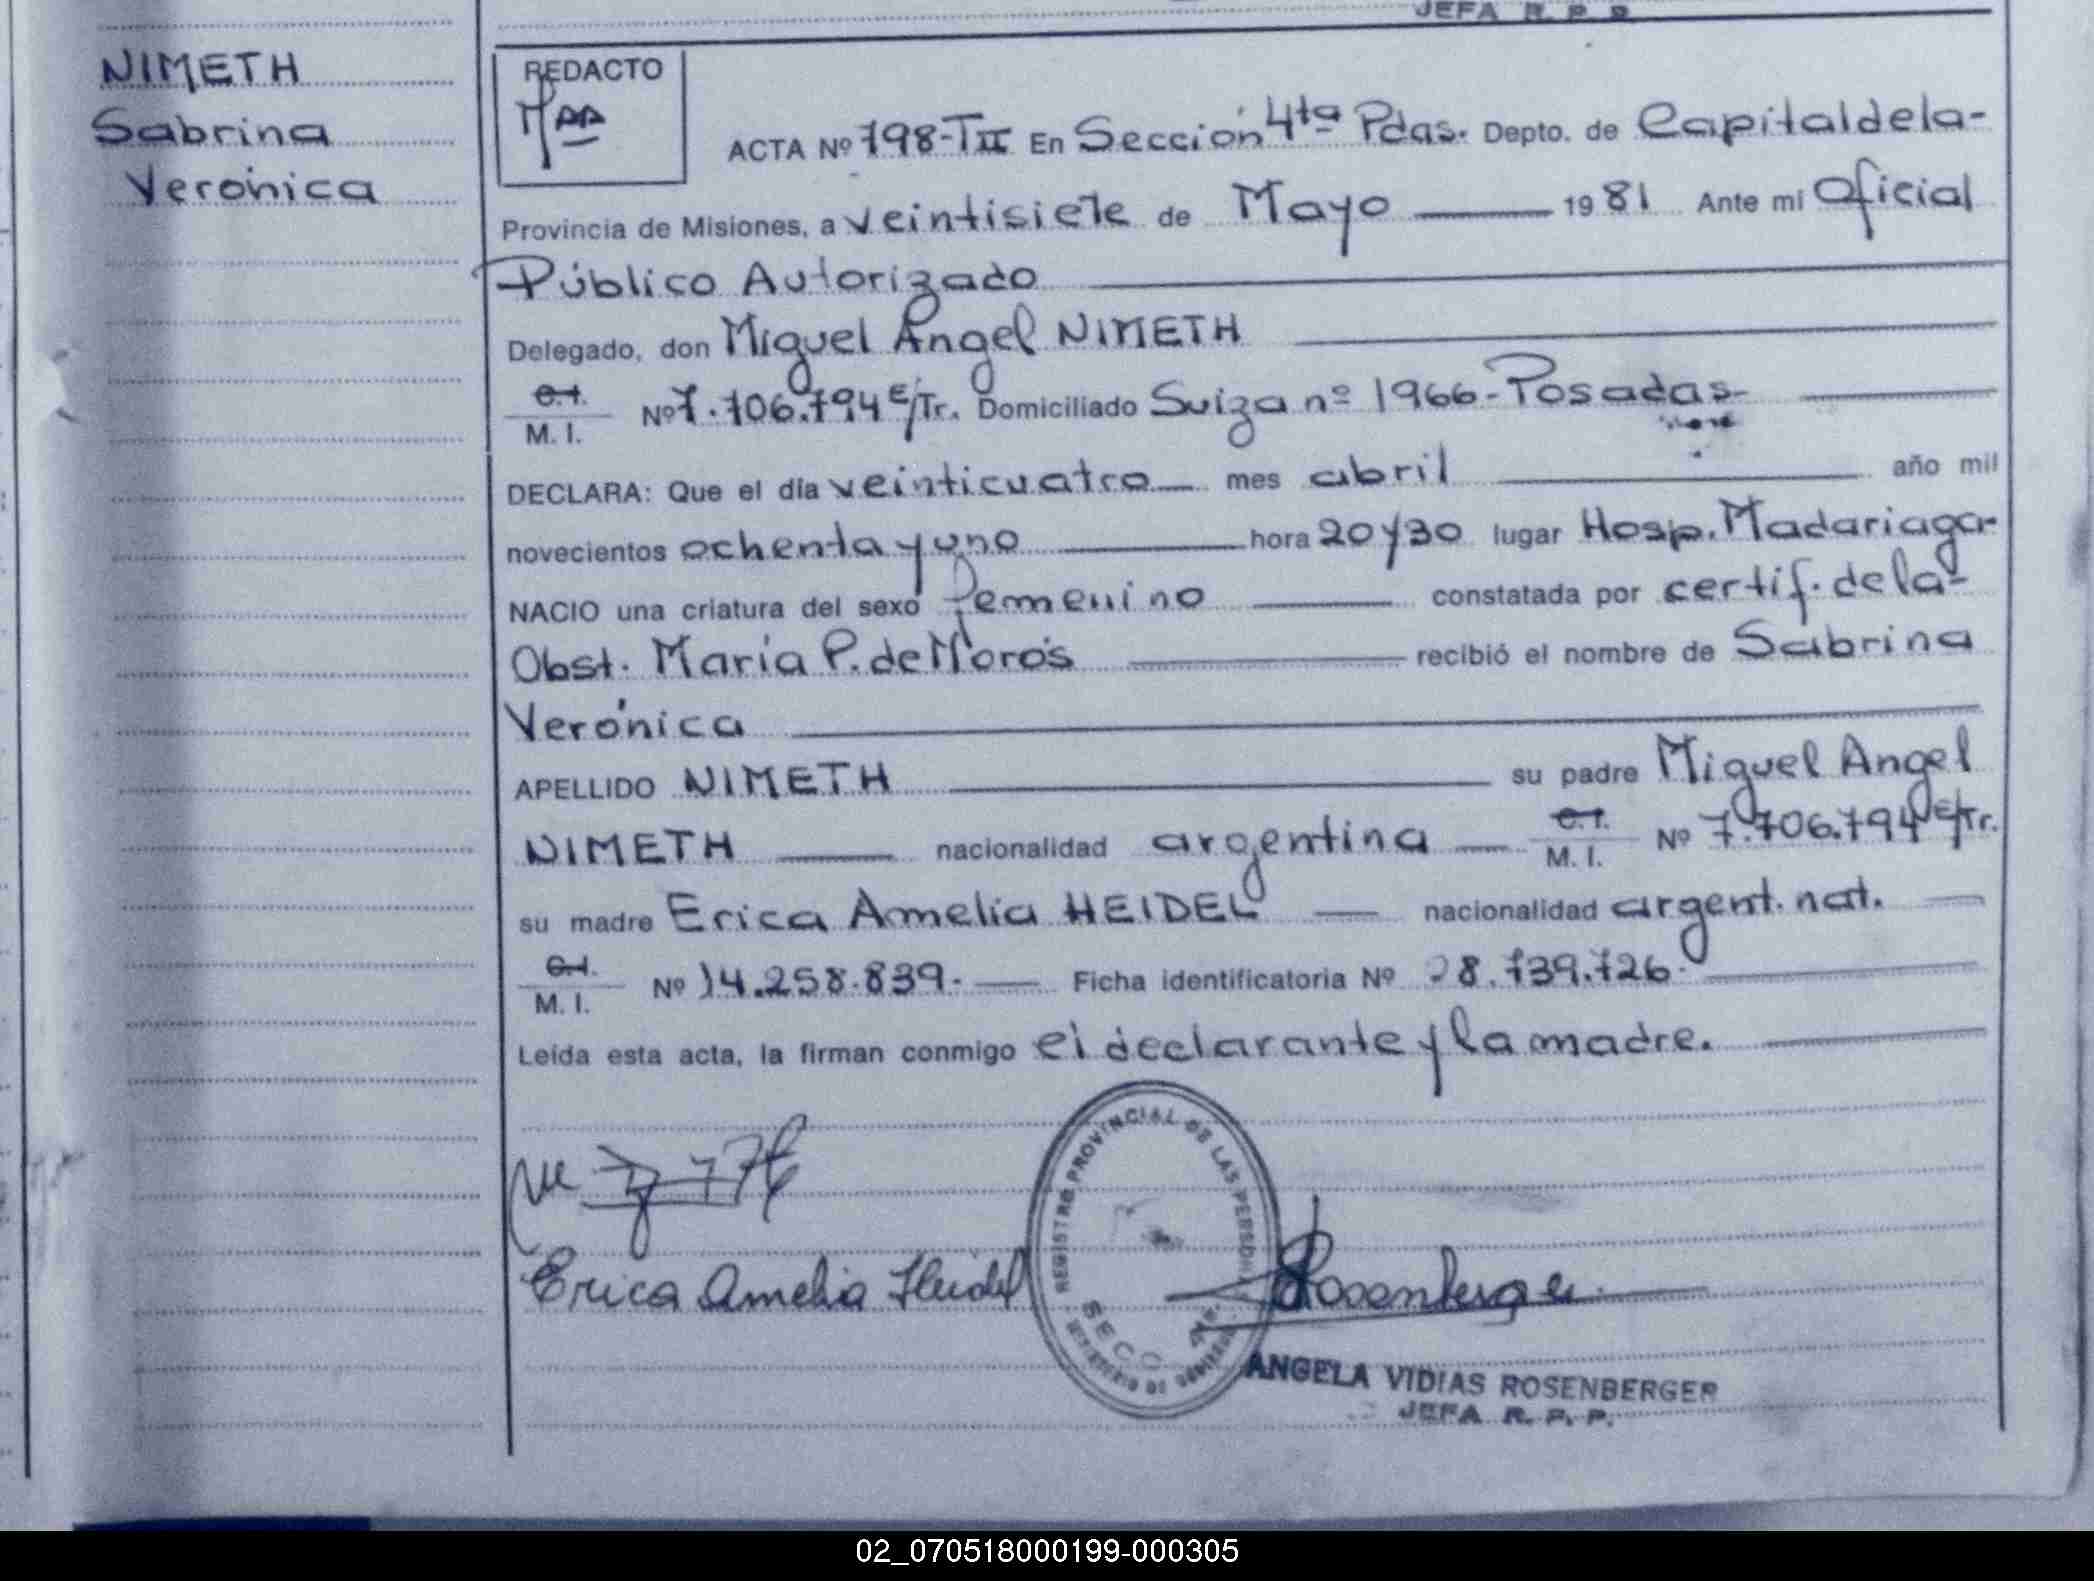 JEFA R. P. P.
NIMETH
Sabrina
Verónica
REDACTO
ACTA Nº 798-TII En Sección 4ta Pdas. Depto. de Capital de la-
Provincia de Misiones, a veintisiete de Mayo 1981 Ante mi Oficial
Público Autorizado
Delegado, don Miguel Angel NIMETH
C.I.
M. I. Nº 7.706.794 E/Tr. Domiciliado Suiza nº 1966-Posadas-
DECLARA: Que el día veinticuatro mes abril año mil
novecientos ochenta y uno hora 20 y 30 lugar Hosp. Madariaga-
NACIO una criatura del sexo femenino constatada por certif. de la-
Obst. María P. de Morós recibió el nombre de Sabrina
Verónica
APELLIDO NIMETH su padre Miguel Angel
NIMETH nacionalidad argentina C.I. M. I. Nº 7.706.794 E/Tr.
su madre Erica Amelia HEIDEL nacionalidad argent. nat.
C.I.
M. I. Nº 14.258.839.- Ficha identificatoria Nº 28.739.726.
Leída esta acta, la firman conmigo el declarante y la madre.
REGISTRO PROVINCIAL DE LAS PERSONAS
Erica Amelia Heidel
Rosenberger
ANGELA VIDIAS ROSENBERGER
JEFA R. P. P.
02_070518000199-000305